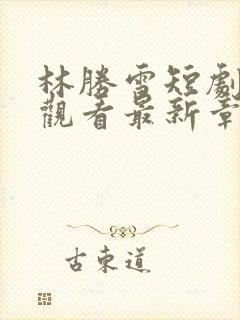 林勝雪短劇
觀看最新章
古東道